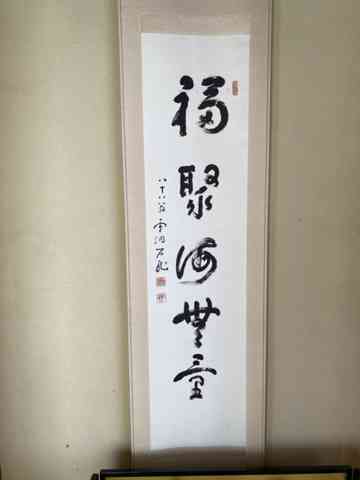 福聚海無量
八十八翁